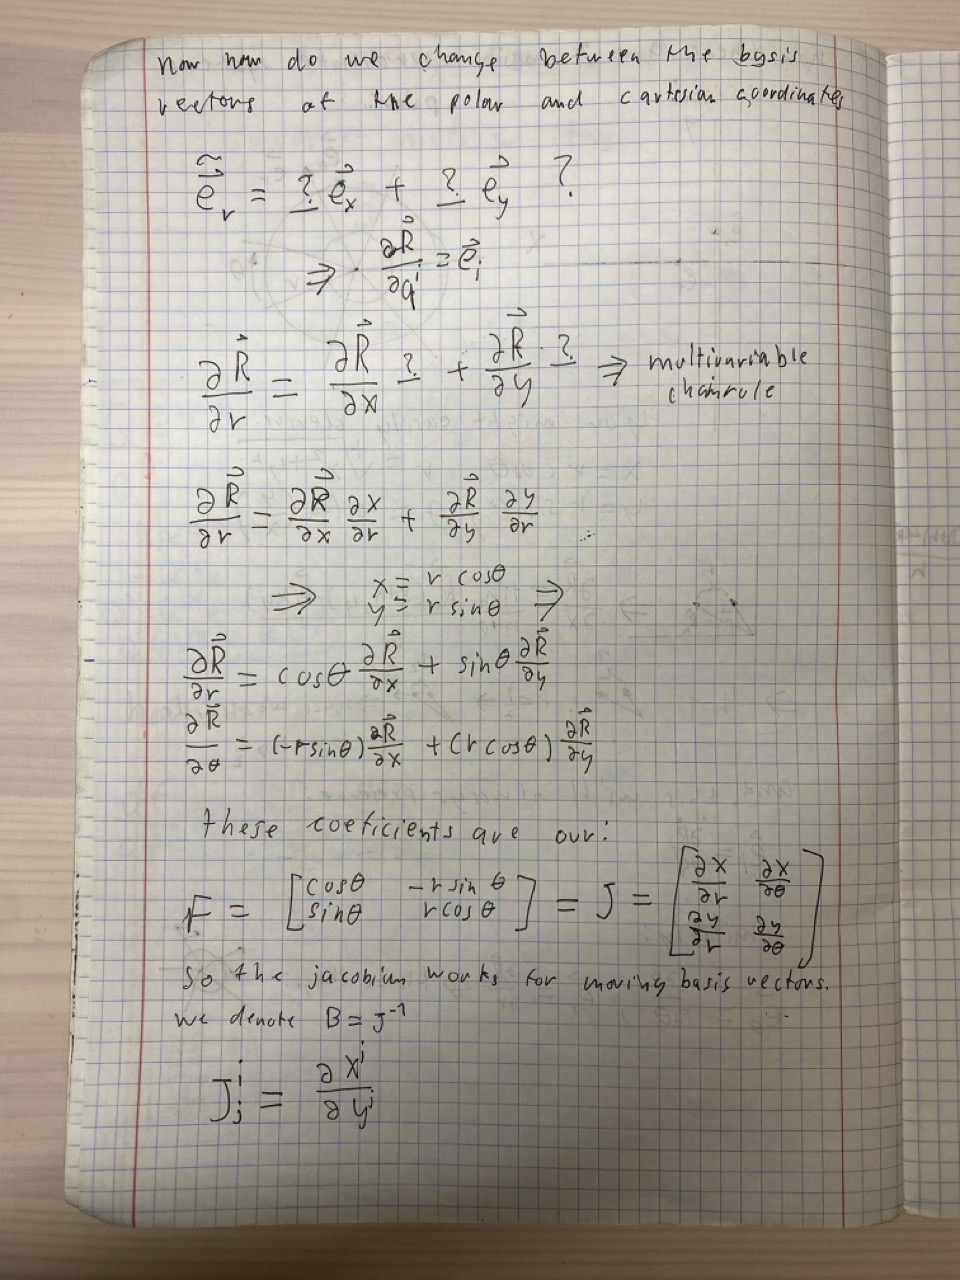 now how do we change between the basis
vectors of the polar and cartesian coordinates
ẽ⃗_r = ? e⃗_x + ? e⃗_y ?
⇒ ∂R⃗/∂q^i = e⃗_i
∂R⃗/∂r = ∂R⃗/∂x ? + ∂R⃗/∂y · ? ⇒ multivariable chainrule
∂R⃗/∂r = ∂R⃗/∂x ∂x/∂r + ∂R⃗/∂y ∂y/∂r
⇒ x = r cosθ
y = r sinθ ⇒
∂R⃗/∂r = cosθ ∂R⃗/∂x + sinθ ∂R⃗/∂y
∂R⃗/∂θ = (-r sinθ) ∂R⃗/∂x + (r cosθ) ∂R⃗/∂y
these coeficients are our:
F = [cosθ -r sinθ; sinθ r cosθ] = J = [∂x/∂r ∂x/∂θ; ∂y/∂r ∂y/∂θ]
so the jacobian works for moving basis vectors.
we denote B = J⁻¹
J^i_j = ∂x^i/∂y^j